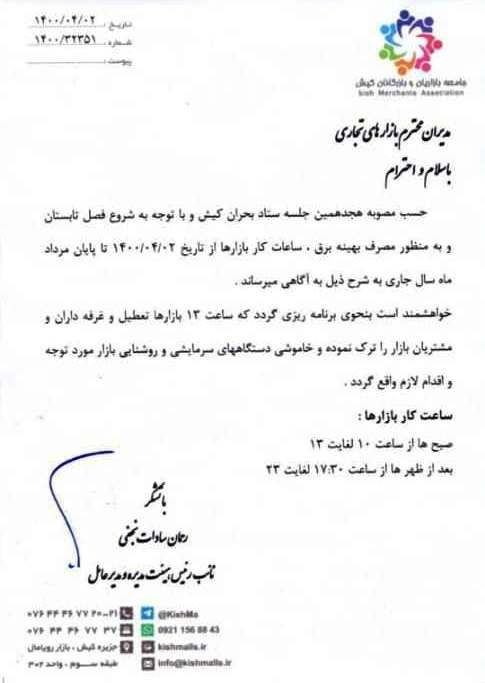 تاریخ : ۱۴۰۰/۰۴/۰۲
شماره : ۱۴۰۰/۳۲۳۵۱
پیوست :
جامعه بازاریان و بازرگانان کیش
kish Merchants Association
مدیران محترم بازارهای تجاری
باسلام و احترام
حسب مصوبه هجدهمین جلسه ستاد بحران کیش و با توجه به شروع فصل تابستان
و به منظور مصرف بهینه برق ، ساعات کار بازارها از تاریخ ۱۴۰۰/۰۴/۰۲ تا پایان مرداد
ماه سال جاری به شرح ذیل به آگاهی میرساند .
خواهشمند است بنحوی برنامه ریزی گردد که ساعت ۱۳ بازارها تعطیل و غرفه داران و
مشتریان بازار را ترک نموده و خاموشی دستگاههای سرمایشی و روشنایی بازار مورد توجه
و اقدام لازم واقع گردد .
ساعت کار بازارها :
صبح ها از ساعت ۱۰ لغایت ۱۳
بعد از ظهر ها از ساعت ۱۷:۳۰ لغایت ۲۳
باتشکر
رحمان سادات نجفی
نائب رئیس هیئت مدیره و مدیرعامل
۰۷۶ ۴۴ ۴۶ ۷۷ ۲۰-۲۱ @KishMa
۰۷۶ ۴۴ ۴۶ ۷۷ ۳۷ 0921 156 88 43
جزیره کیش ، بازار رویامال kishmalls.ir
طبقه سـوم ، واحد ۳۰۲ info@kishmalls.ir